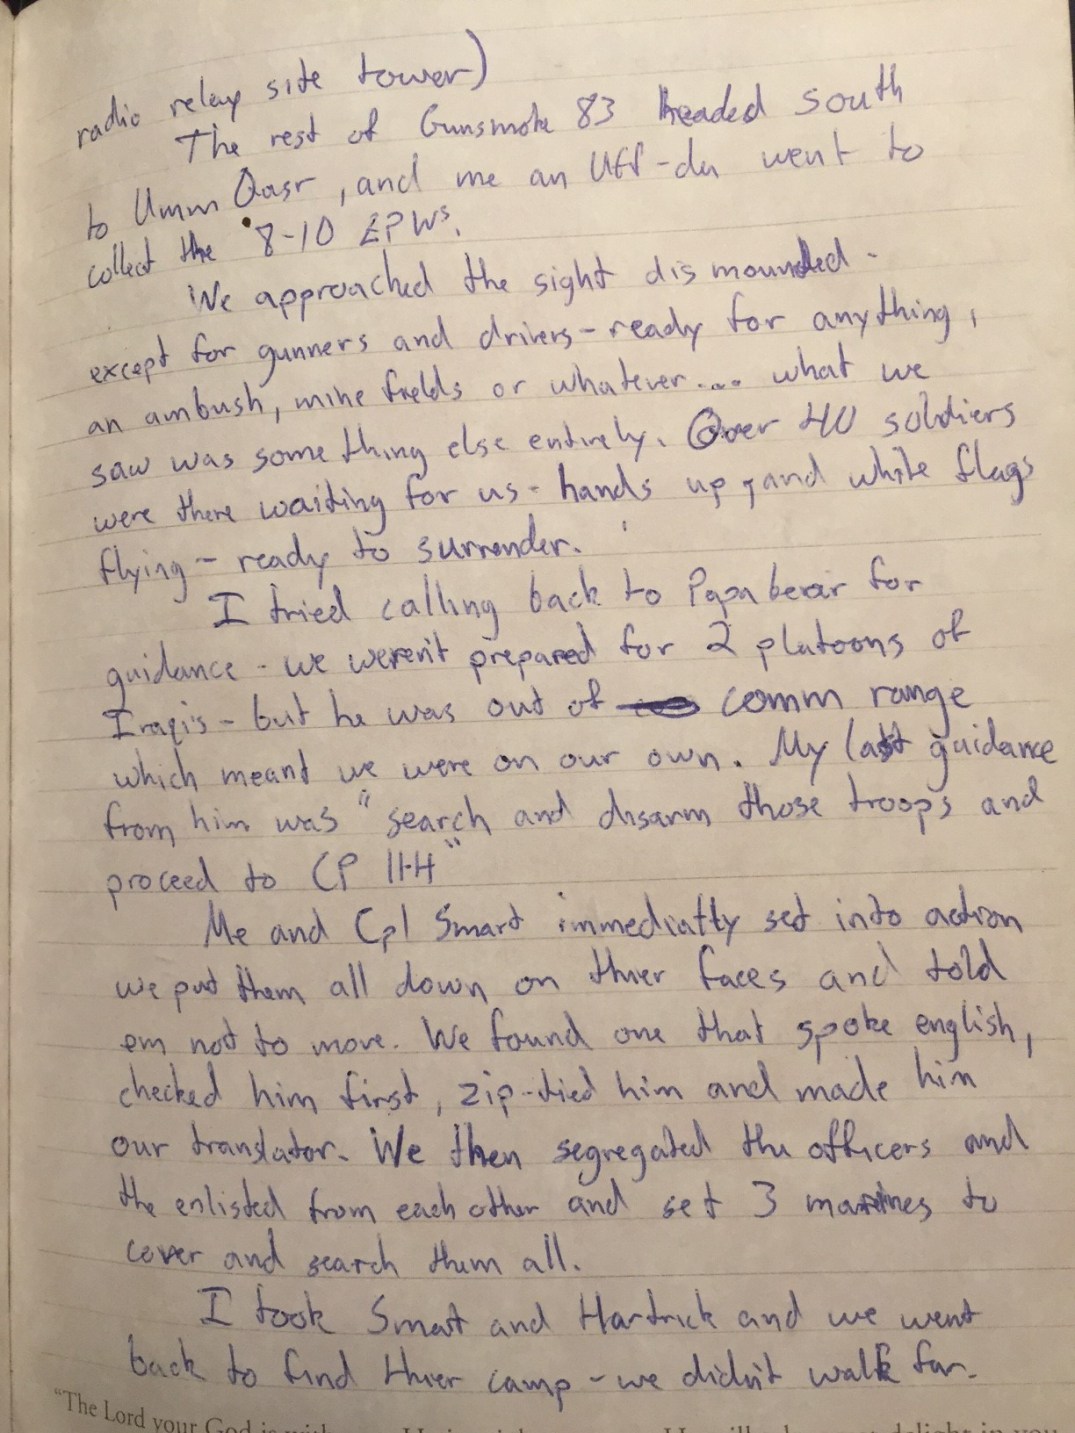 radio relay site tower)
The rest of Gunsmoke 83 headed south
to Umm Qasr, and me an Uff-da went to
collect the 8-10 EPWs.
We approached the sight dismounted -
except for gunners and drivers - ready for anything,
an ambush, mine fields or whatever.... what we
saw was something else entirely. Over 40 soldiers
were there waiting for us - hands up, and white flags
flying - ready to surrender.
I tried calling back to Papa bear for
guidance - we weren't prepared for 2 platoons of
Iraqis - but he was out of comm range
which meant we were on our own. My last guidance
from him was "search and disarm those troops and
proceed to CP
Me and Cpl Smart immediatly set into action
we put them all down on thier faces and told
em not to move. We found one that spoke english,
checked him first, zip-tied him and made him
our translator. We then segregated the officers and
the enlisted from each other and set 3 marines to
cover and search them all.
I took Smart and Hartrick and we went
back to find thier camp - we didn't walk far.
"The Lord your God is with
delight in you